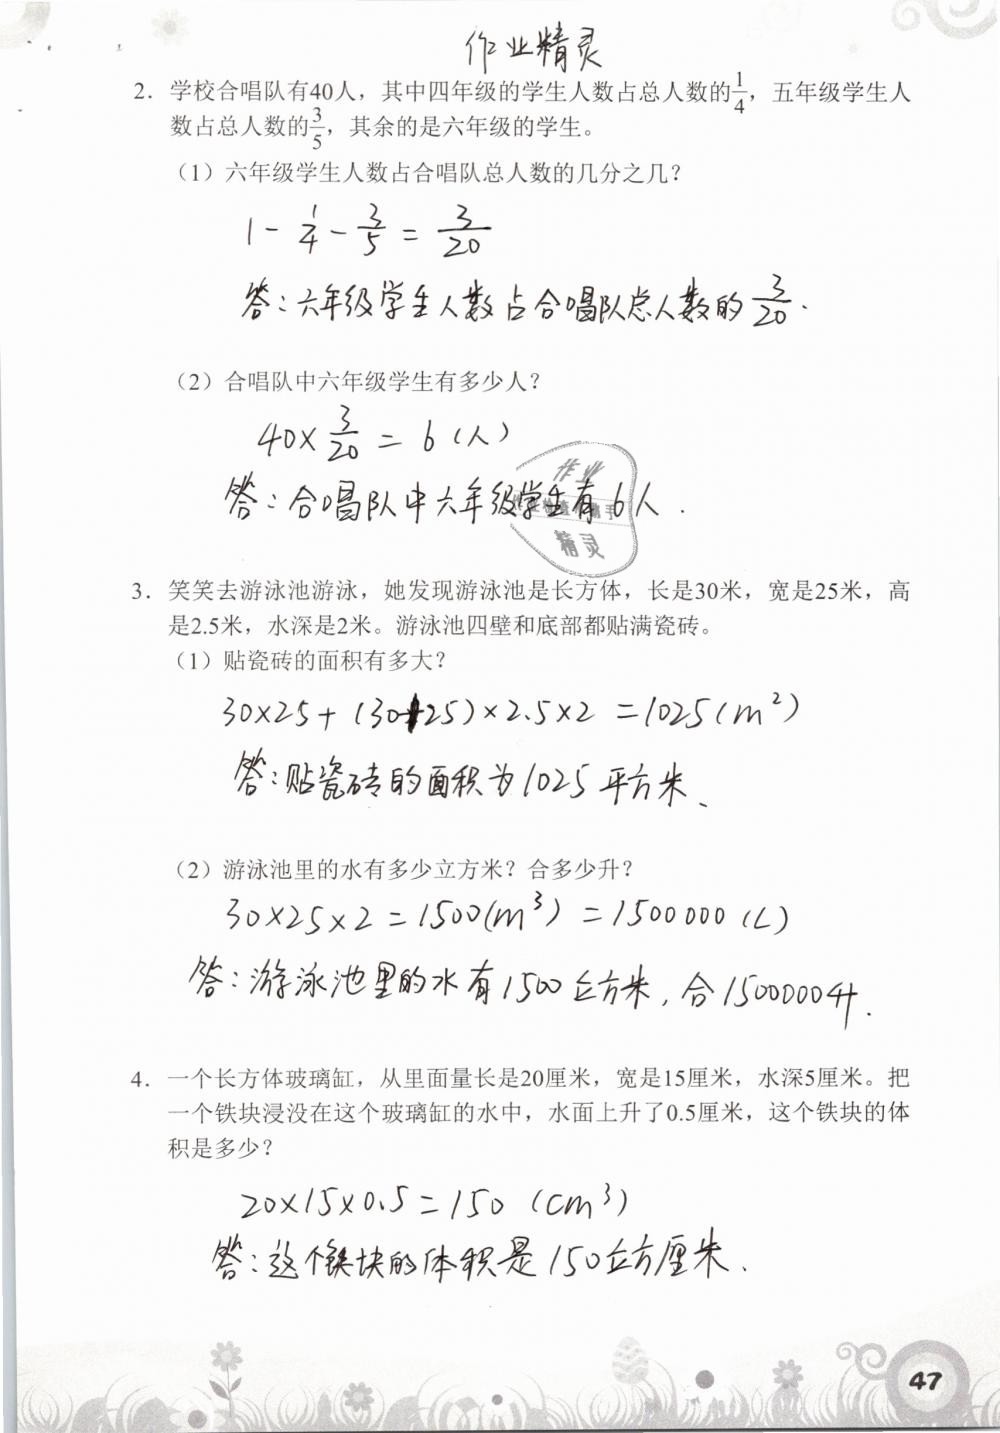 作业精灵
2. 学校合唱队有40人，其中四年级的学生人数占总人数的1/4，五年级学生人
数占总人数的3/5，其余的是六年级的学生。
（1）六年级学生人数占合唱队总人数的几分之几？
1-1/4-3/5=3/20
答：六年级学生人数占合唱队总人数的3/20.
（2）合唱队中六年级学生有多少人？
40×3/20=6（人）
答：合唱队中六年级学生有6人.
作业
精灵
3. 笑笑去游泳池游泳，她发现游泳池是长方体，长是30米，宽是25米，高
是2.5米，水深是2米。游泳池四壁和底部都贴满瓷砖。
（1）贴瓷砖的面积有多大？
30×25+（30+25）×2.5×2=1025(m²)
答：贴瓷砖的面积为1025平方米、
（2）游泳池里的水有多少立方米？合多少升？
30×25×2=1500(m³)=1500000(L)
答：游泳池里的水有1500立方米，合1500000升.
4. 一个长方体玻璃缸，从里面量长是20厘米，宽是15厘米，水深5厘米。把
一个铁块浸没在这个玻璃缸的水中，水面上升了0.5厘米，这个铁块的体
积是多少？
20×15×0.5=150（cm³）
答：这个铁块的体积是150立方厘米.
47